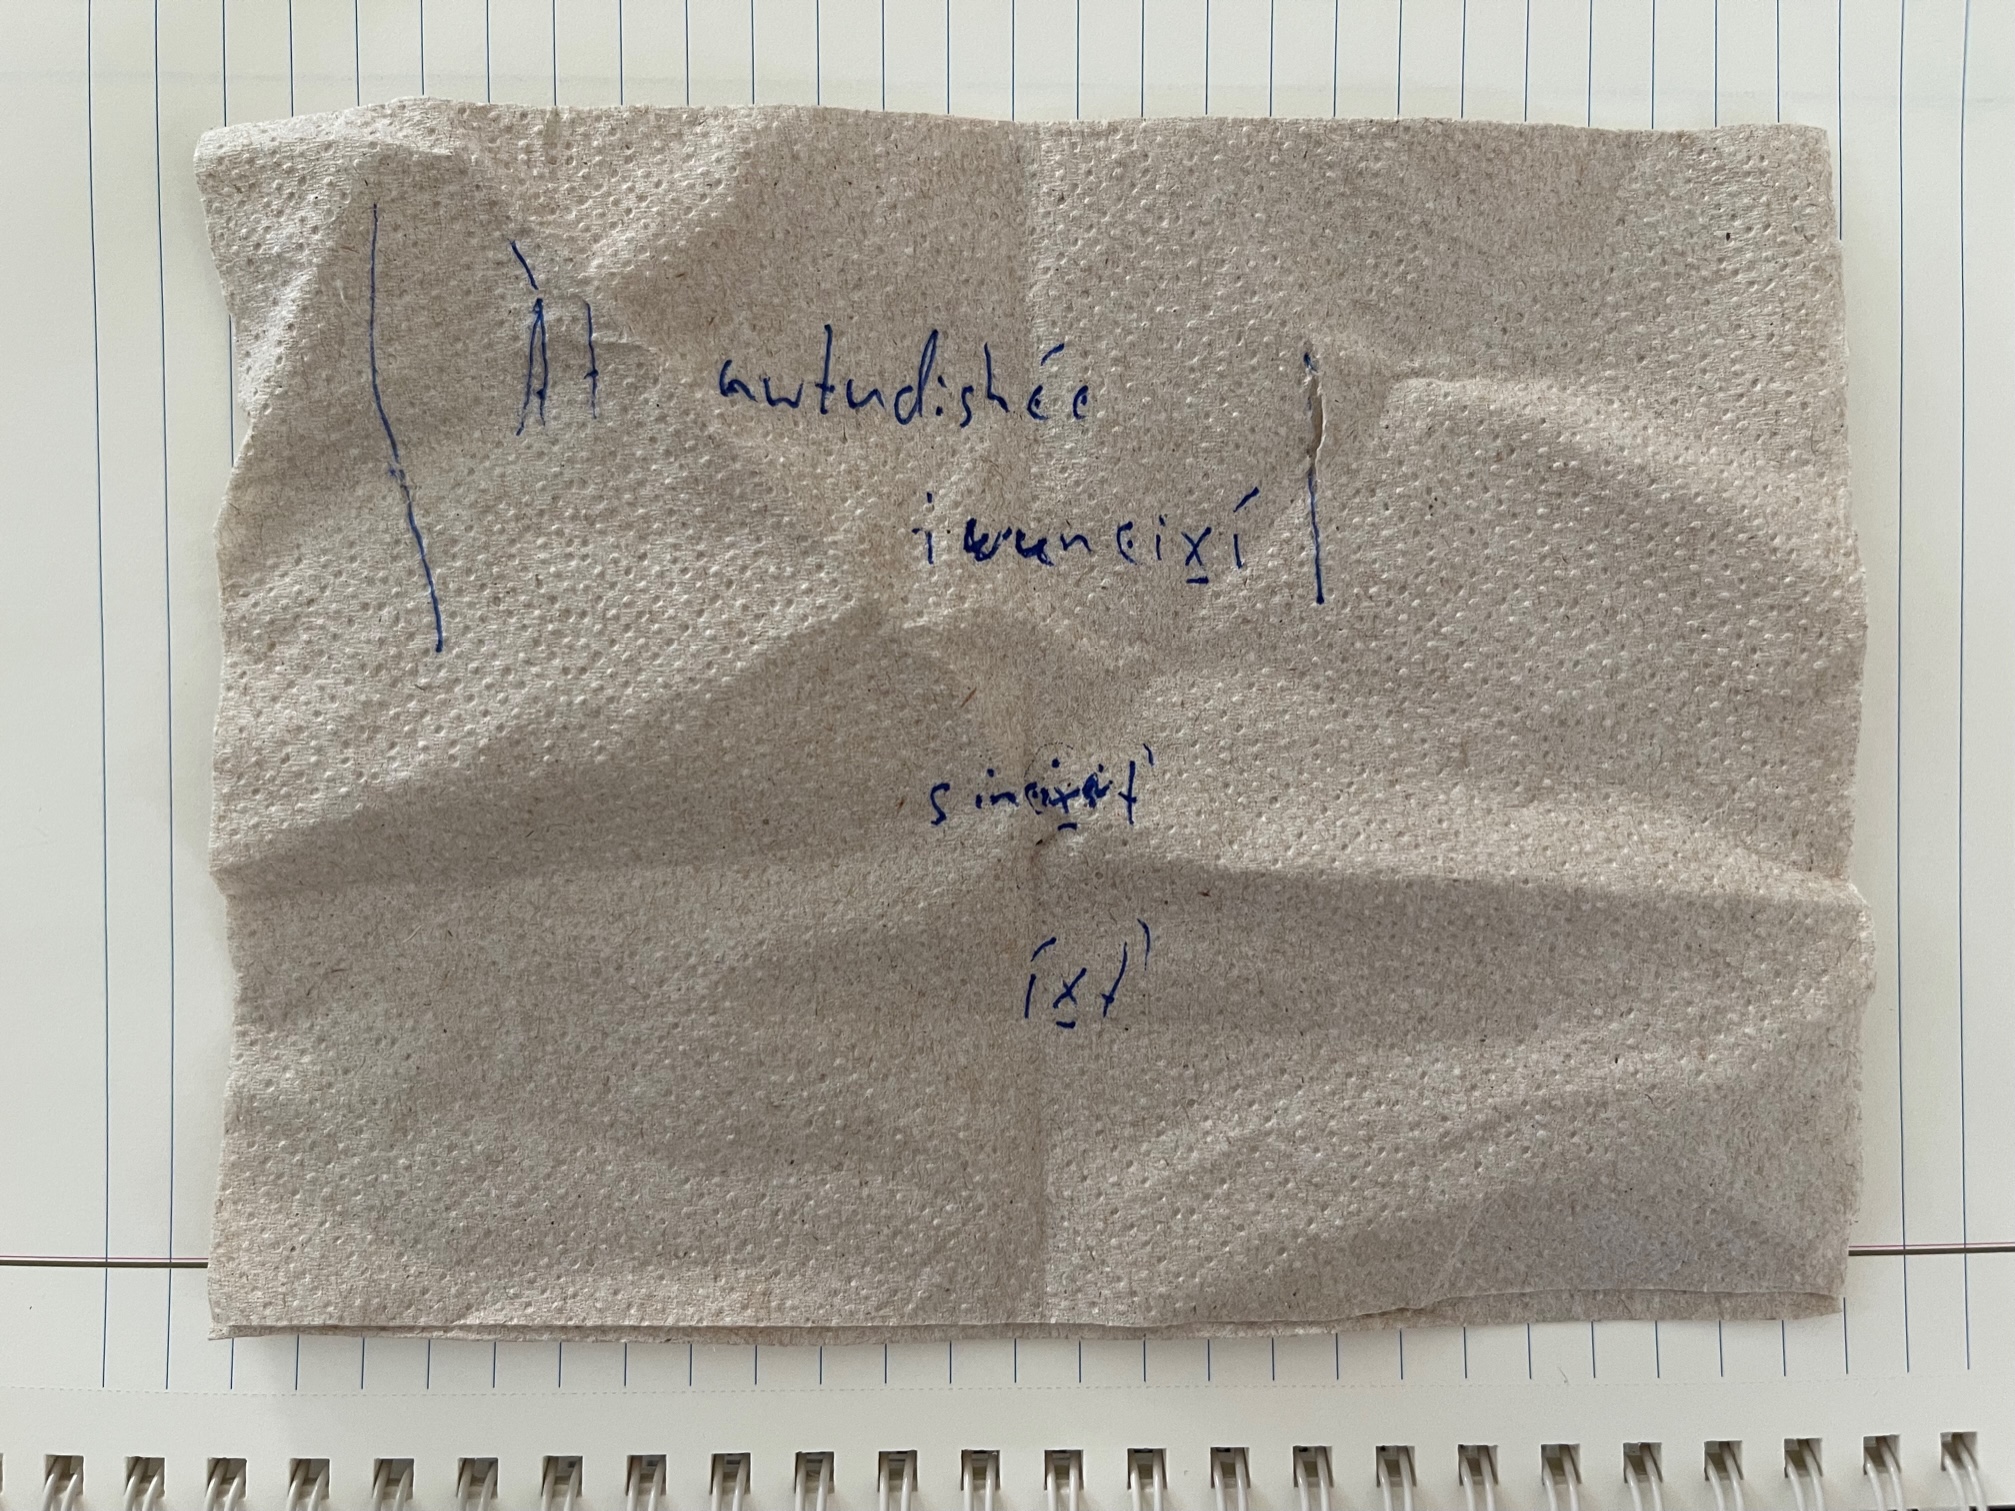 Àt awtudishée
iwuneixí
sineixít'
íx̱t'